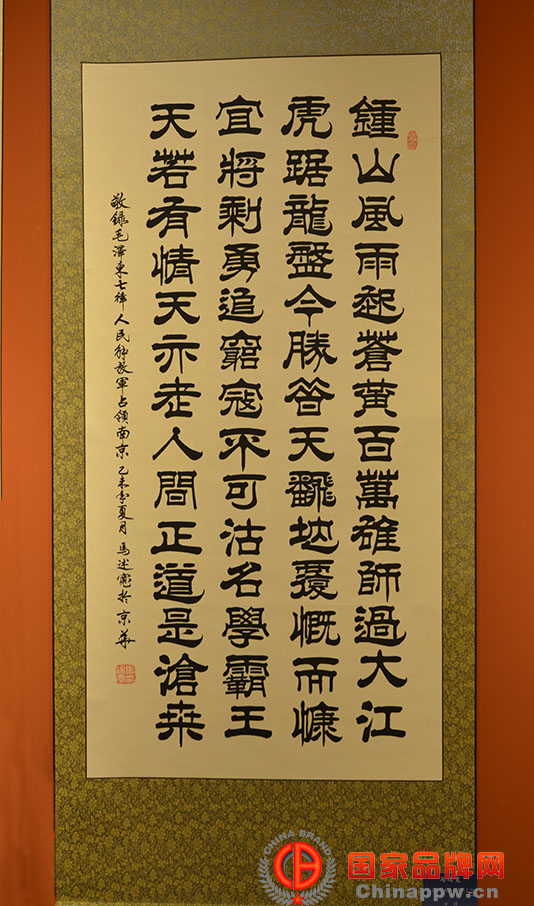 鍾山風雨起蒼黄百萬雄師過大江
虎踞龍盤今勝昔天翻地覆慨而慷
宜將剩勇追窮寇不可沽名學霸王
天若有情天亦老人間正道是滄桑
敬錄毛澤東七律人民解放軍占領南京 乙未季夏月 馬述於京華
CHINA BRAND
国家品牌网
Chinappw.cn